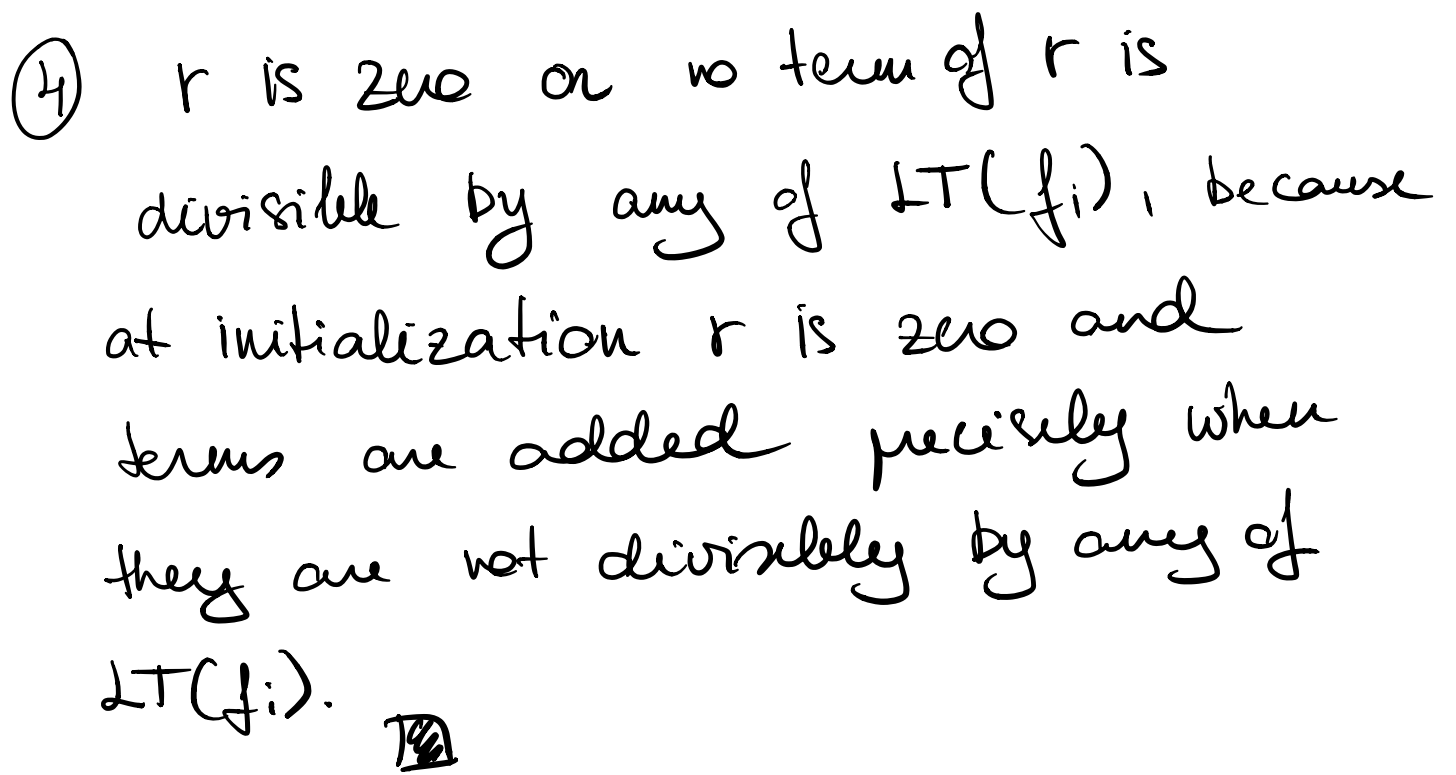 ④ r is zero or no term of r is
divisible by any of LT(fi), because
at initialization r is zero and
terms are added precisely when
they are not divisibly by any of
LT(fi).